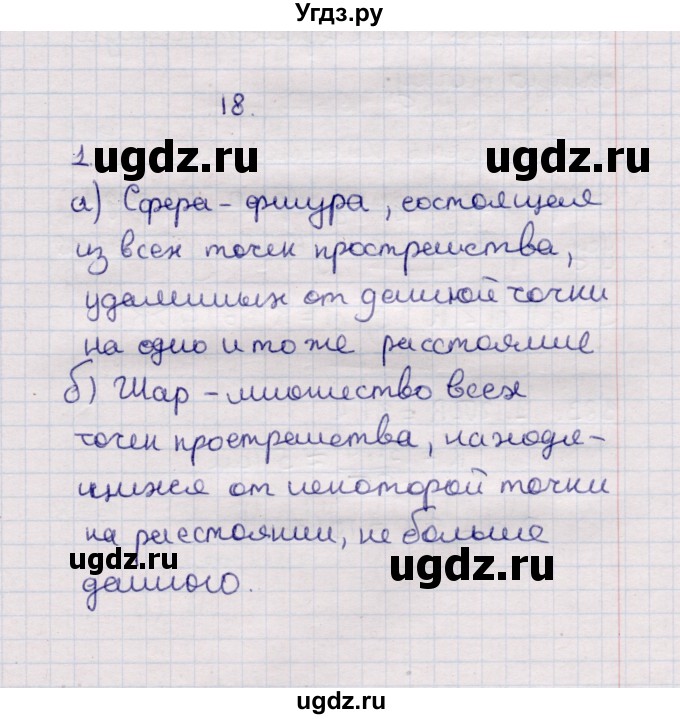 Угдз.ру
18.
1
ugdz.ru ugdz.ru
а) Сфера - фигура, состоящая
из всех точек пространства,
удаленных от данной точки
на одно и то же расстояние
б) Шар - множество всех
точек пространства, находя-
щихся от некоторой точки
на расстоянии, не больше
ugdz.ru ugdz.ru
данного.
ugdz.ru